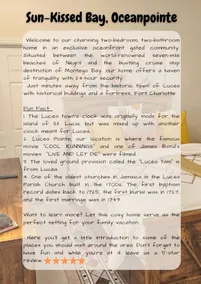 Sun-Kissed Bay, Oceanpointe
Welcome to our charming two-bedroom, two-bathroom
home in an exclusive oceanfront gated community.
Situated between the world-renowned seven-mile
beaches of Negril and the bustling cruise ship
destination of Montego Bay, our home offers a haven
of tranquility with 24-hour security.
Just minutes away from the historic town of Lucea
with historical buildings and a fortress, Fort Charlotte.
Fun Fact
1. The Lucea town's clock was originally made for the
island of St. Lucia, but was mixed up with another
clock meant for Lucea.
2. Lucea Pointe, our location is where the famous
movie "COOL RUNNINGS" and one of James Bond's
movies "LIVE AND LET DIE" were filmed.
3. The loved ground provision called the "Lucea Yam" is
from Lucea.
4. One of the oldest churches in Jamaica is the Lucea
Parish Church, built in the 1700s. The first baptism
record dates back to 1725, the first burial was in 1727,
and the first marriage was in 1749.
Want to learn more? Let this cosy home serve as the
perfect setting for your family vacation.
Here you'll get a little introduction to some of the
places you should visit around the area. Don't forget to
have fun and while you're at it leave us a 5-star
review